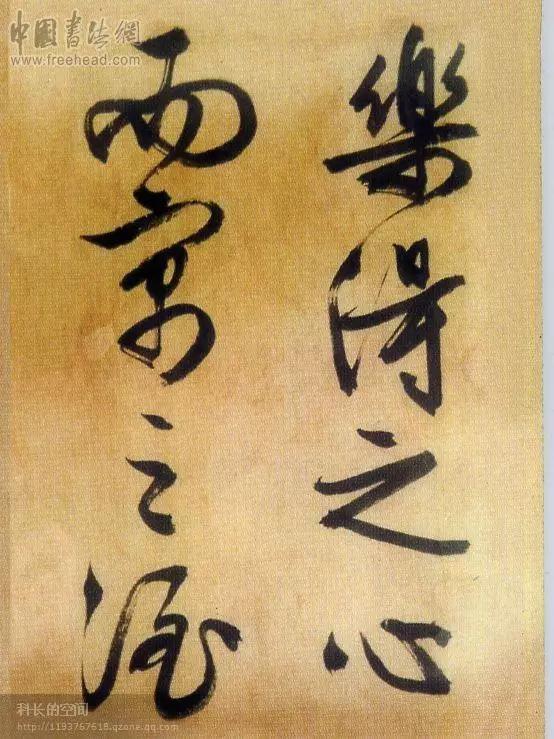 中国书法網
www.freehead.com
樂得之心
而寓之酒
科长的空间
http://1193767618.qzone.qq.com